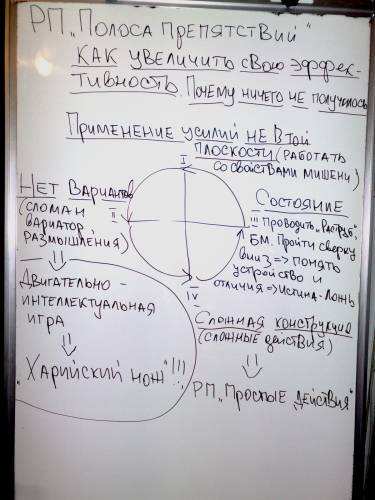 РП „Полоса препятствий"
КАК УВЕЛИЧИТЬ СВОЮ ЭФФЕК-
ТИВНОСТЬ. Почему ничего не получилось
Применение усилий не в той
плоскости (работать
со свойствами мишени)
I
Нет вариантов
(сломан
вариатор
размышления)
II
Состояние
!!! Проводить „Раструб",
БМ. Пройти сверху
вниз => понять
устройство и
отличия => Истина-Ложь
IV
Двигательно-
интеллектуальная
игра
Сложная конструкция
(сложные действия)
„Харийский нож"!!!
РП „Простые действия"